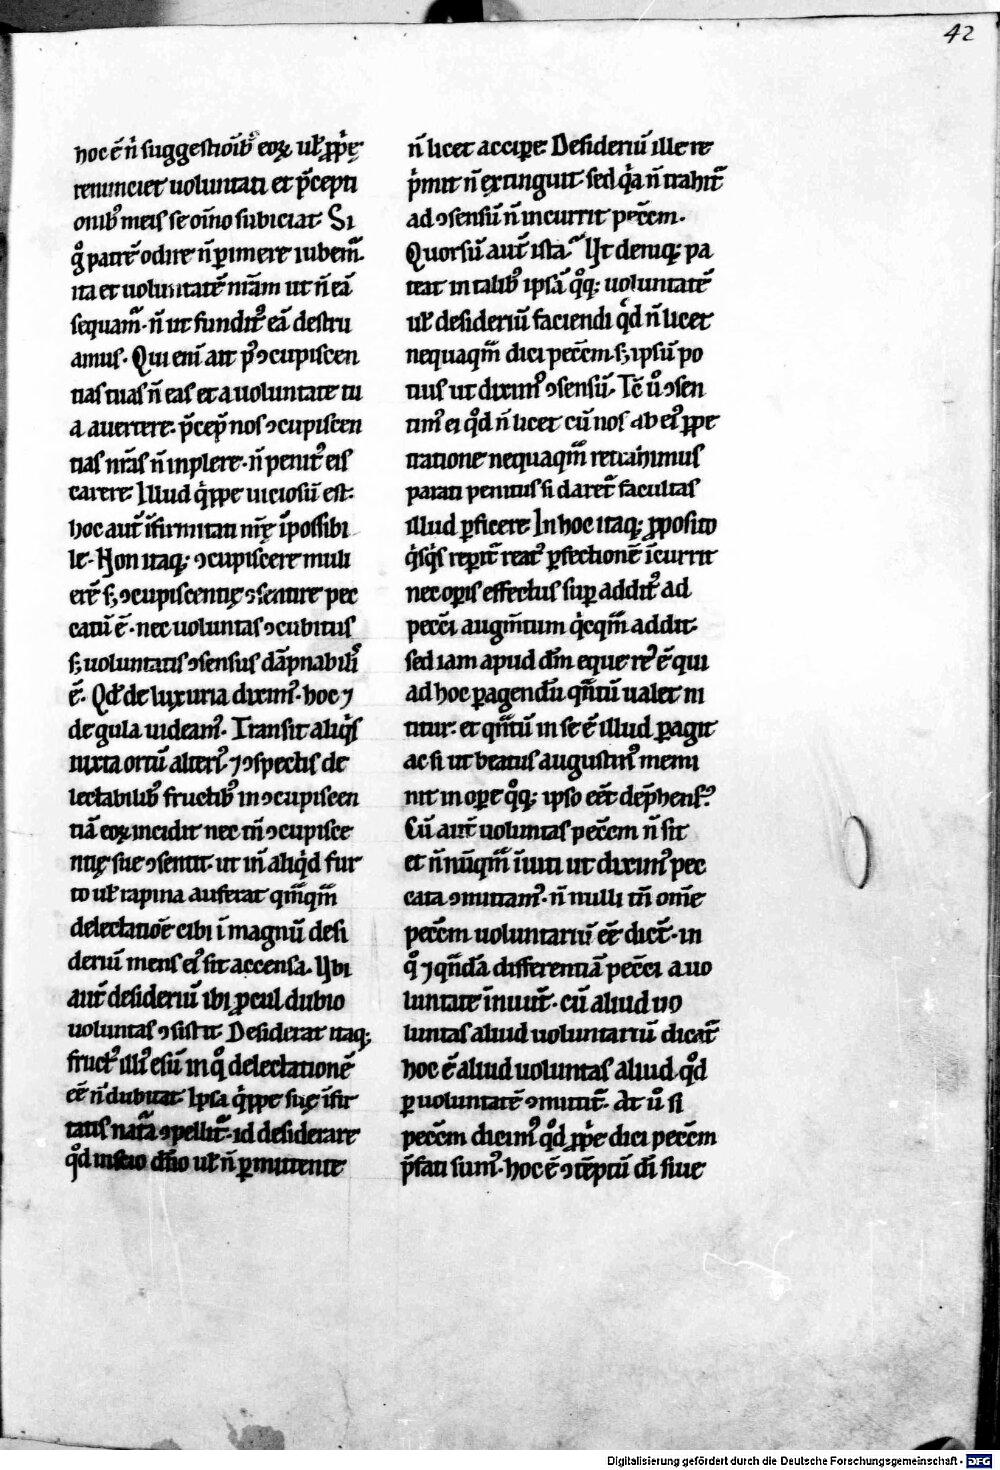 42
hoc ē n̄ suggestioīb᷒ eoꝝ ul̄ ꝓpͥę
renunciet uoluntati et p̄cepti
onib᷒ meis se oīno subiciat. Si
gͦ patrē odire n̄ ꝑimere iubem᷒.
ita et uoluntatē nr̄am ut n̄ eā
sequam᷒. n̄ ut fundit᷒ eā destru
amus. Qui enī ait pꝰ ꝯcupiscen
tias tuas n̄ eas et a uoluntate tu
a auertere. p̄cep̄ nos ꝯcupiscen
tias nr̄as n̄ inplere. n̄ penit᷒ eis
carere. Illud qͥppe uiciosū est.
hoc aut̄ īfirmitati nr̄ę īpossibi
le. Non itaq; ꝯcupiscere muli
erē s; ꝯcupiscentię ꝯsentire pec
catū ē. nec uoluntas ꝯcubitus
s; uoluntatis ꝯsensus dāpnabil᷒
ē. Qd̄ de luxuria dixim᷒. hoc ⁊
de gula uideam᷒. Transit aliqͥs
iuxta ortū alteri᷒ ⁊ ꝯspectis de
lectabilib᷒ fructib᷒ in ꝯcupiscen
tiā eoꝝ incidit nec tn̄ ꝯcupisce
ntię sue ꝯsentit. ut in̄ aliqͥd fur
to ul̄ rapina auferat qm̄qm̄
delectatiōe cibi ī magnū desi
deriū mens ei᷒ sit accensa. Ubi
aut̄ desideriū ibi ꝓcul dubio
uoluntas ꝯsistit. Desiderat itaq;
fruct᷒ illi᷒ esū in qͦ delectationē
eē n̄ dubitat. Ipsa qͥppe suę īfir
mitatis nat̄a ꝯpellit᷒. id desiderare
qͦd inscio dn̄o ul̄ n̄ ꝑmittente
n̄ licet accipe. Desideriū ille re
pͥmit n̄ extinguit. sed qͥa n̄ trahit᷒
ad ꝯsensū n̄ incurrit pecc̄m.
Quorsū aut̄ ista? Ut deniq; pa
teat in talib᷒ ipsā qͦq; uoluntatē
ul̄ desideriū faciendi qͦd n̄ licet
nequaqm̄ dici pecc̄m. s; ipsū po
tius ut dixim᷒ ꝯsensū. Tc̄ uͦ ꝯsen
tim᷒ ei qͦd n̄ licet cū nos ab ei᷒ ꝑpe
tratione nequaqm̄ retrahimus
parati penitus si daret᷒ facultas
illud ꝑficere. In hoc itaq; ꝓposito
qͥsqͥs reꝑit᷒ reat᷒ ꝑfectionē īcurrit
nec oꝑis effectus suꝑ addit᷒ ad
pecc̄i augm̄tum qͥcqm̄ addit.
sed iam apud dm̄ eque re᷒ ē qui
ad hoc ꝑagendū qn̄tū ualet ni
titur. et qn̄tū in se ē illud ꝑagit
ac si ut beatus augustin᷒ memi
nit in oꝑe qͦq; ipso eēt dep̄hens᷒.
Cū aut̄ uoluntas pecc̄m n̄ sit
et n̄nūqm̄ īuiti ut dixim᷒ pec
cata ꝯmittam᷒. n̄ nulli tn̄ om̄e
pecc̄m uoluntariū eē dict̄. in
qͦ ⁊ qn̄dā differentiā pecc̄i a uo
luntate inuūt. cū aliud uo
luntas aliud uoluntariū dicat᷒
hoc ē aliud uoluntas aliud qͦd
ꝑ uoluntatē ꝯmittit᷒. At uͦ si
pecc̄m dicim᷒ qͦd ꝓpͥe dici pecc̄m
p̄fati sum᷒. hoc ē ꝯtēptū dī siue
Digitalisierung gefördert durch die Deutsche Forschungsgemeinschaft - DFG